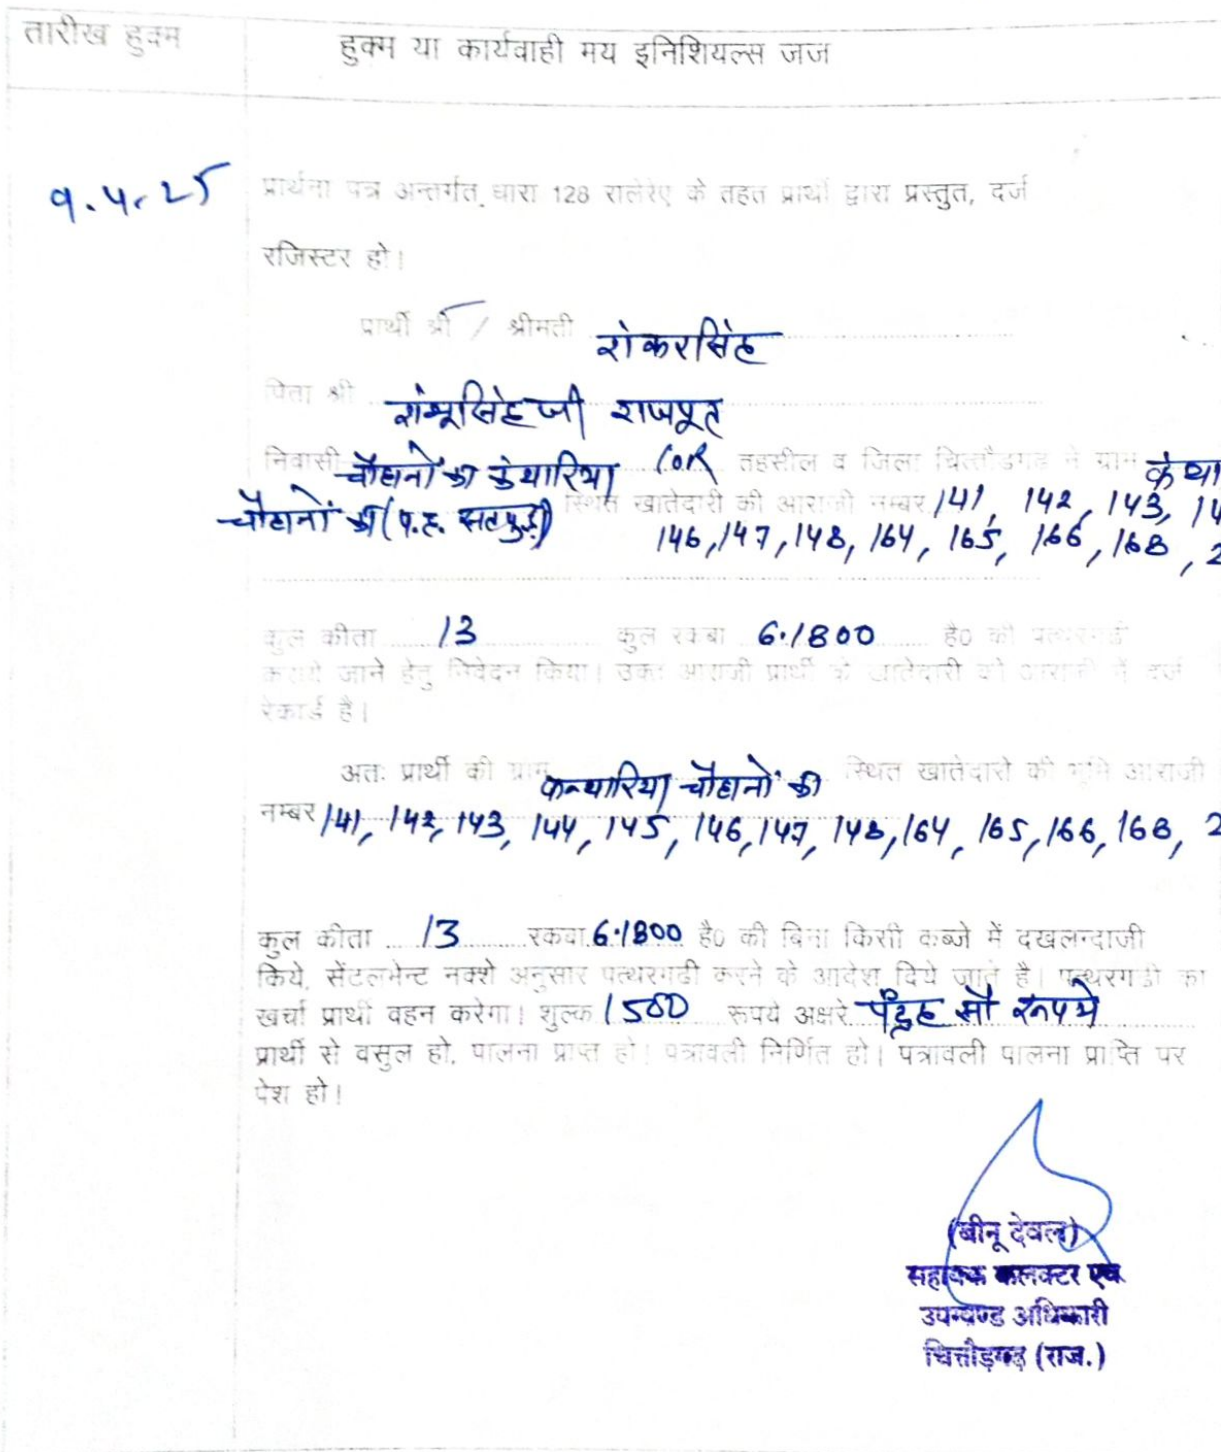 तारीख हुक्म
हुक्म या कार्यवाही मय इनिशियल्स जज
9.4.25
प्रार्थना पत्र अन्तर्गत धारा 128 रालेरेए के तहत प्रार्थी द्वारा प्रस्तुत, दर्ज
रजिस्टर हो।
प्रार्थी श्री / श्रीमती शंकरसिंह
पिता श्री शंभूसिंह जी राजपूत
निवासी चौहानों की कंथारिया तहसील व जिला चित्तौडगढ ने ग्राम कंथा
चौहानों की (प.ह. सतपुड़ा) स्थित खातेदारी की आराजी नम्बर 141, 142, 143, 14
146, 147, 148, 164, 165, 166, 168, 2
कुल कीता 13 कुल रकबा 6.1800 है0 की पत्थरगढी
करवाये जाने हेतु निवेदन किया। उक्त आराजी प्रार्थी के खातेदारी की आराजी में दर्ज
रेकार्ड है।
अतः प्रार्थी की ग्राम कन्थारिया चौहानों की स्थित खातेदारी की भूमि आराजी
नम्बर 141, 142, 143, 144, 145, 146, 147, 148, 164, 165, 166, 168, 2
कुल कीता 13 रकबा 6.1800 है0 की बिना किसी कब्जे में दखलन्दाजी
किये, सेंटलमेन्ट नक्शे अनुसार पत्थरगढी करने के आदेश दिये जाते है। पत्थरगडी का
खर्चा प्रार्थी वहन करेगा। शुल्क 1500 रूपये अक्षरे पंद्रह सौ रूपये
प्रार्थी से वसुल हो, पालना प्राप्त हो। पत्रावली निर्णित हो। पत्रावली पालना प्राप्ति पर
पेश हो।
(बीनू देवल)
सहायक कलक्टर एवं
उपखण्ड अधिकारी
चित्तौड़गढ़ (राज.)